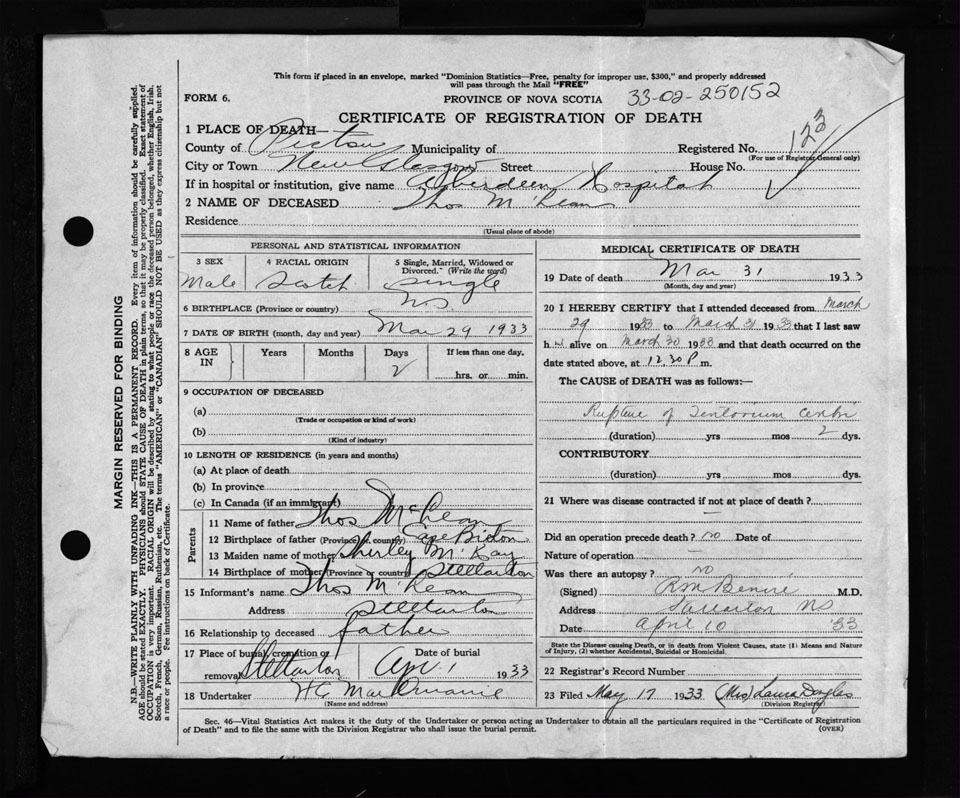 This form if placed in an envelope, marked "Dominion Statistics—Free, penalty for improper use, $300," and properly addressed
will pass through the Mail "FREE"
FORM 6.
PROVINCE OF NOVA SCOTIA
33-02-250152
CERTIFICATE OF REGISTRATION OF DEATH
1 PLACE OF DEATH—
County of Pictou Municipality of Registered No. 123
(For use of Registrar General only)
City or Town New Glasgow Street House No.
If in hospital or institution, give name Aberdeen Hospital
2 NAME OF DECEASED Thos McLean
Residence
(Usual place of abode)
PERSONAL AND STATISTICAL INFORMATION
3 SEX
Male
4 RACIAL ORIGIN
Scotch
5 Single, Married, Widowed or
Divorced. (Write the word)
single
6 BIRTHPLACE (Province or country) N.S.
7 DATE OF BIRTH (month, day and year) Mar 29 1933
8 AGE
IN
Years
Months
Days
2
If less than one day,
hrs. or min.
9 OCCUPATION OF DECEASED
(a)
(Trade or occupation or kind of work)
(b)
(Kind of industry)
10 LENGTH OF RESIDENCE (in years and months)
(a) At place of death
(b) In province
(c) In Canada (if an immigrant)
Parents
11 Name of father Thos McLean
12 Birthplace of father (Province or country) Cape Breton
13 Maiden name of mother Shirley McKay
14 Birthplace of mother (Province or country) Stellarton
15 Informant's name Thos McLean
Address Stellarton
16 Relationship to deceased father
17 Place of burial, cremation or
removal Stellarton
Date of burial
Apr. 1 1933
18 Undertaker H C
(Name and address)
MEDICAL CERTIFICATE OF DEATH
19 Date of death Mar 31 1933
(Month, day and year)
20 I HEREBY CERTIFY that I attended deceased from March
29 1933 to March 31 1933 that I last saw
h alive on March 30 1933 and that death occurred on the
date stated above, at 12.30 P m.
The CAUSE OF DEATH was as follows:—
Rupture of Tentorium
(duration) yrs mos 2 dys.
CONTRIBUTORY
(duration) yrs mos dys.
21 Where was disease contracted if not at place of death?
—
Did an operation precede death? no Date of
Nature of operation —
Was there an autopsy? no
(Signed) R M M.D.
Address Stellarton NS
Date April 10 '33
State the Disease causing Death, or in death from Violent Causes, state (1) Means and Nature
of Injury, (2) whether Accidental, Suicidal or Homicidal.
22 Registrar's Record Number
23 Filed May 17 1933 (Mrs) Laura Douglas
(Division Registrar)
Sec. 46—Vital Statistics Act makes it the duty of the Undertaker or person acting as Undertaker to obtain all the particulars required in the "Certificate of Registration
of Death" and to file the same with the Division Registrar who shall issue the burial permit.
(OVER)
MARGIN RESERVED FOR BINDING
N.B.—WRITE PLAINLY WITH UNFADING INK—THIS IS A PERMANENT RECORD. Every item of information should be carefully supplied.
AGE should be stated EXACTLY. PHYSICIANS should STATE CAUSE OF DEATH in plain terms, so that it may be properly classified. Exact statement of
OCCUPATION is very important. RACIAL ORIGIN will be described by stating to what people or race the deceased person belonged, whether English, Irish,
Scotch, French, German, Russian, Ruthenian, etc. The terms "AMERICAN" or "CANADIAN" SHOULD NOT BE USED as they express citizenship but not
a race or people. Fee instructions on back of Certificate.